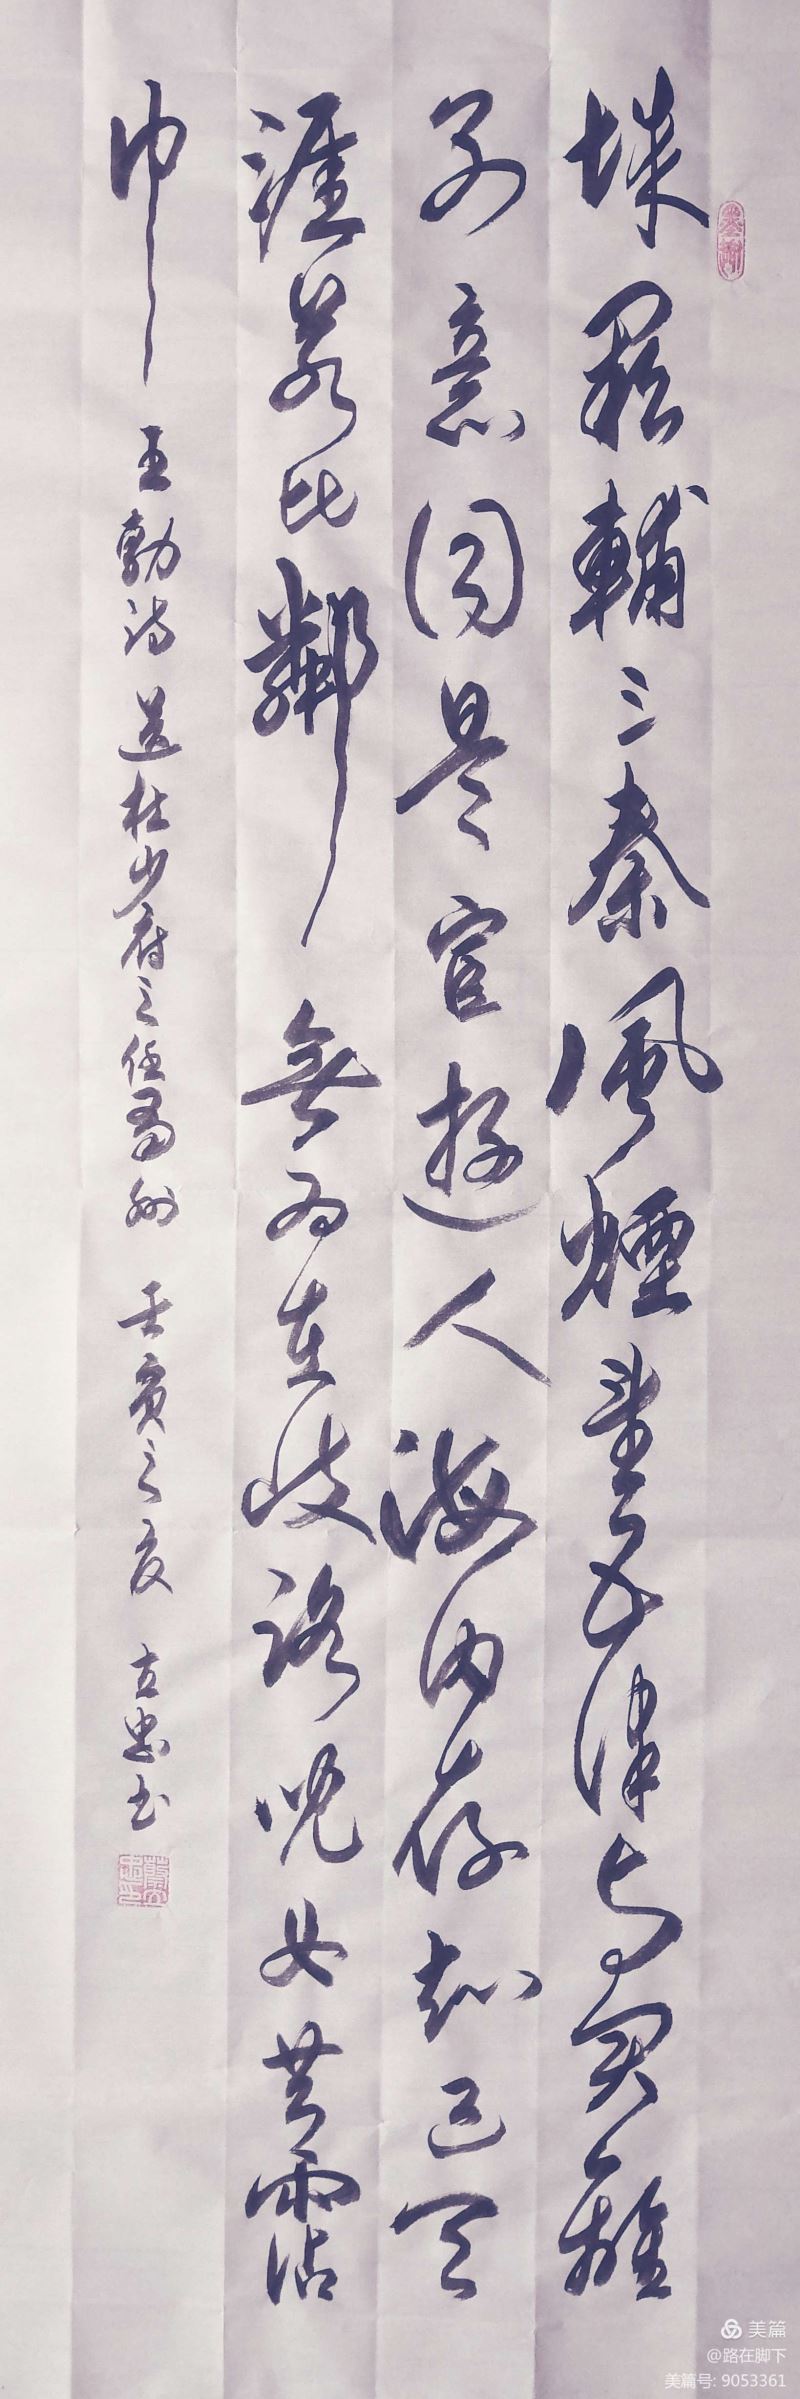 城闕輔三秦風煙望五津与君離
别意同是宦遊人海内存知己天
涯若比鄰無为在岐路兒女共霑
巾 王勃诗 送杜少府之任蜀州 壬寅之夏 忠书
美篇
@路在脚下
美篇号: 9053361